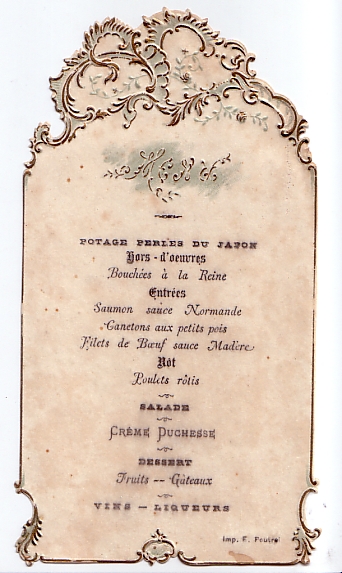 MENU
POTAGE PERLES DU JAPON
Hors-d'oeuvres
Bouchées à la Reine
Entrées
Saumon sauce Normande
Canetons aux petits pois
Filets de Bœuf sauce Madère
Rôt
Poulets rôtis
SALADE
CRÉME DUCHESSE
DESSERT
Fruits -- Gâteaux
VINS — LIQUEURS
Imp. E. Feutrel